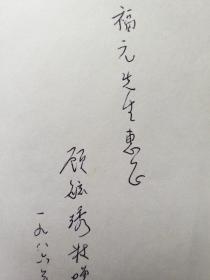 福元先生惠正
顾毓琇敬赠
一九八六年